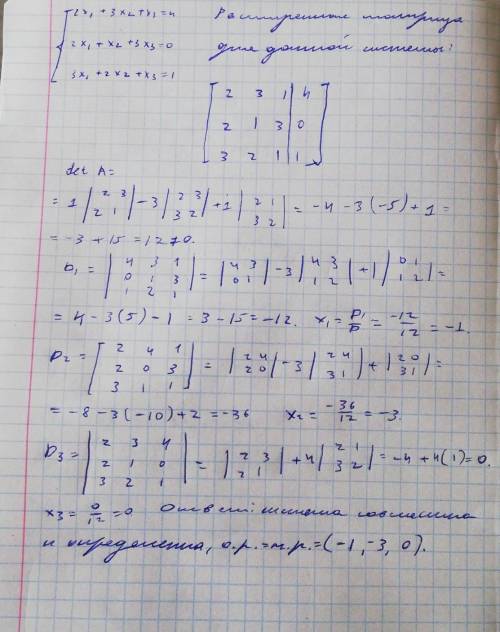 2x₁ + 3x₂ + x₃ = 4
2x₁ + x₂ + 3x₃ = 0
3x₁ + 2x₂ + x₃ = 1
Расширенная матрица
для данной системы:
[ 2 3 1 | 4
2 1 3 | 0
3 2 1 | 1 ]
det A =
= 1 |2 3; 2 1| - 3 |2 3; 3 2| + 1 |2 1; 3 2| = -4 - 3(-5) + 1 =
= -3 + 15 = 12 ≠ 0.
D₁ = |4 3 1; 0 1 3; 1 2 1| = |4 3; 0 1| - 3 |4 3; 1 2| + 1 |0 1; 1 2| =
= 4 - 3(5) - 1 = 3 - 15 = -12. x₁ = D₁/D = -12/12 = -1.
D₂ = |2 4 1; 2 0 3; 3 1 1| = |2 4; 2 0| - 3 |2 4; 3 1| + |2 0; 3 1| =
= -8 - 3(-10) + 2 = -36 x₂ = -36/12 = -3.
D₃ = |2 3 4; 2 1 0; 3 2 1| = |2 3; 2 1| + 4 |2 1; 3 2| = -4 + 4(1) = 0.
x₃ = 0/12 = 0 Ответ: система совместна
и определенна, о.р. = ч.р. = (-1, -3, 0).